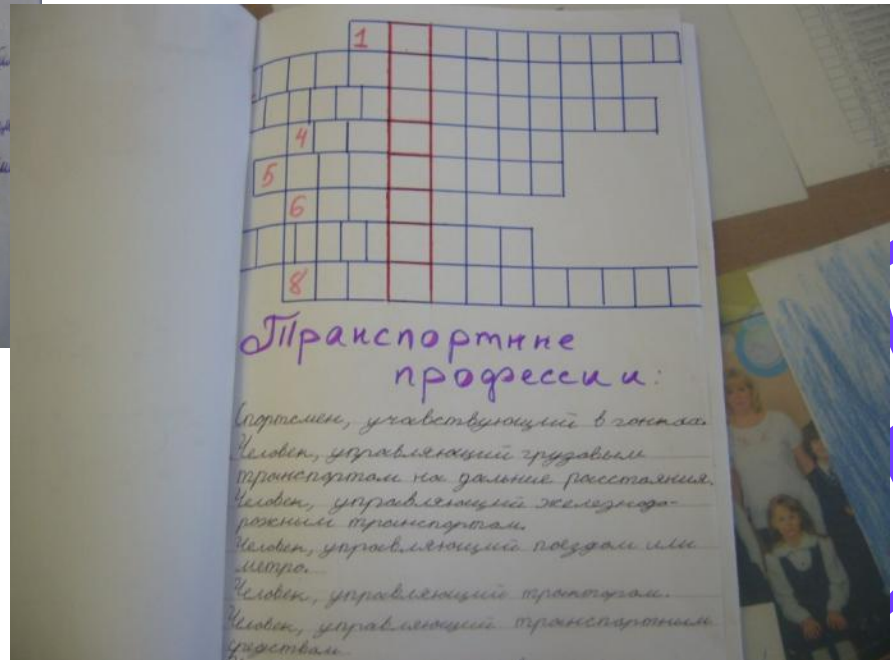 1
4
5
6
8
Транспортне
профессии:
Спортсмен, учавствующий в гонках.
Человек, управляющий грузовым
транспортам на дальние расстояния.
Человек, управляющий железнодо-
рожним транспортам.
Человек, управляющий поездом или
метро.
Человек, управляющий трактарам.
Человек, управляющий транспортним
средствам